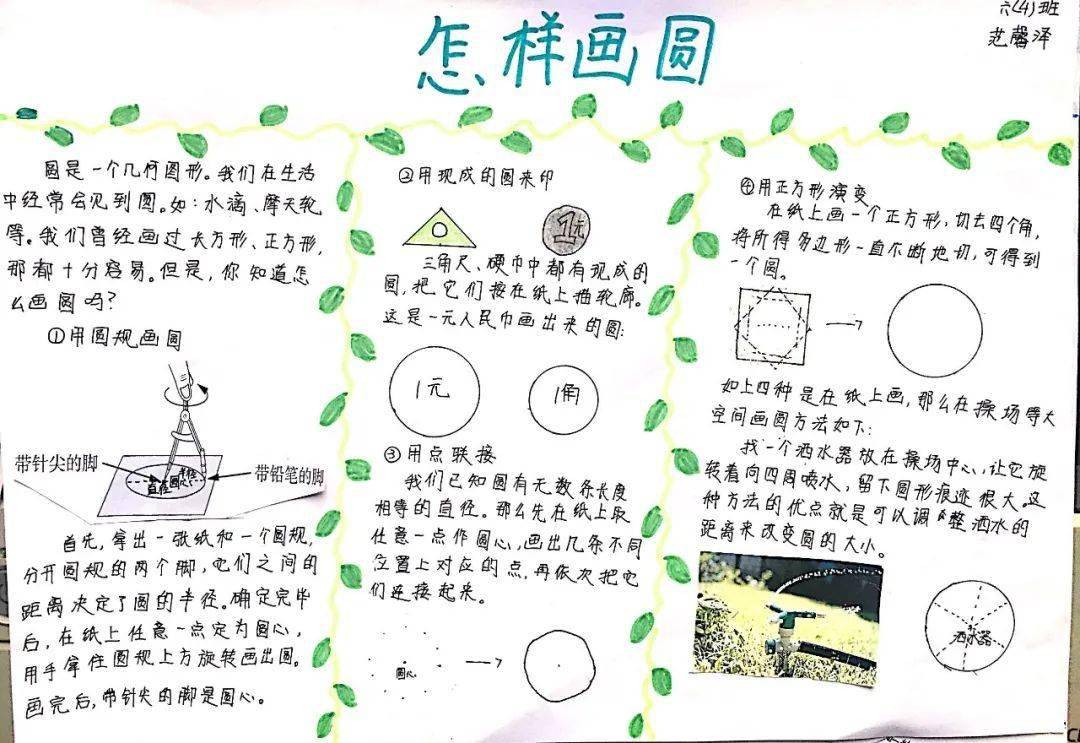 怎样画圆
六(4)班
范馨泽
圆是一个几何图形。我们在生活
中经常会见到圆。如:水滴、摩天轮
等。我们曾经画过长方形、正方形,
那都十分容易。但是,你知道怎
么画圆吗?
①用圆规画圆
带针尖的脚
带铅笔的脚
直径
圆心
半径
首先,拿出一张纸和一个圆规,
分开圆规的两个脚,它们之间的
距离决定了圆的半径。确定完毕
后,在纸上任意一点定为圆心,
用手拿住圆规上方旋转画出圆。
画完后,带针尖的脚是圆心。
②用现成的圆来印
1元
三角尺、硬币中都有现成的
圆,把它们按在纸上描轮廓。
这是一元人民币画出来的圆:
1元
1角
③用点联接
我们已知圆有无数条长度
相等的直径。那么先在纸上取
任意一点作圆心,画出几条不同
位置上对应的点,再依次把它
们连接起来。
圆心
④用正方形演变
在纸上画一个正方形,切去四个角,
将所得多边形一直不断地切,可得到
一个圆。
如上四种是在纸上画,那么在操场等大
空间画圆方法如下:
找一个洒水器放在操场中心,让它旋
转着向四周喷水,留下圆形痕迹很大。这
种方法的优点就是可以调整洒水的
距离来改变圆的大小。
洒水器